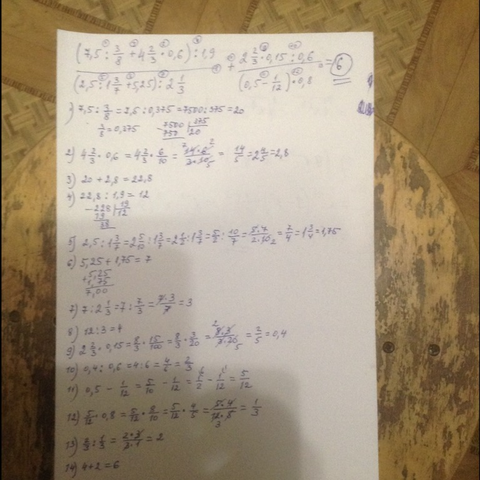 (7,5 : 3/8 + 4 2/3 · 0,6) : 1,9 / (2,5 : 1 3/7 + 5,25) : 2 1/3 + 2 2/3 · 0,15 : 0,6 / (0,5 - 1/12) · 0,8 = 6
1) 7,5 : 3/8 = 7,5 : 0,375 = 7500 : 375 = 20
3/8 = 0,375
2) 4 2/3 · 0,6 = 4 2/3 · 6/10 = 14·6/3·10 = 14/5 = 2 4/5 = 2,8
3) 20 + 2,8 = 22,8
4) 22,8 : 1,9 = 12
5) 2,5 : 1 3/7 = 2 5/10 : 1 3/7 = 2 1/2 : 1 3/7 = 5/2 : 10/7 = 5·7/2·10 = 7/4 = 1 3/4 = 1,75
6) 5,25 + 1,75 = 7
+5,25
1,75
7,00
7) 7 : 2 1/3 = 7 : 7/3 = 7·3/7 = 3
8) 12 : 3 = 4
9) 2 2/3 · 0,15 = 8/3 · 15/100 = 8/3 · 3/20 = 8·3/3·20 = 2/5 = 0,4
10) 0,4 : 0,6 = 4 : 6 = 4/6 = 2/3
11) 0,5 - 1/12 = 5/10 - 1/12 = 1/2 - 1/12 = 5/12
12) 5/12 · 0,8 = 5/12 · 8/10 = 5/12 · 4/5 = 5·4/12·5 = 1/3
13) 2/3 : 1/3 = 2·3/3·1 = 2
14) 4 + 2 = 6